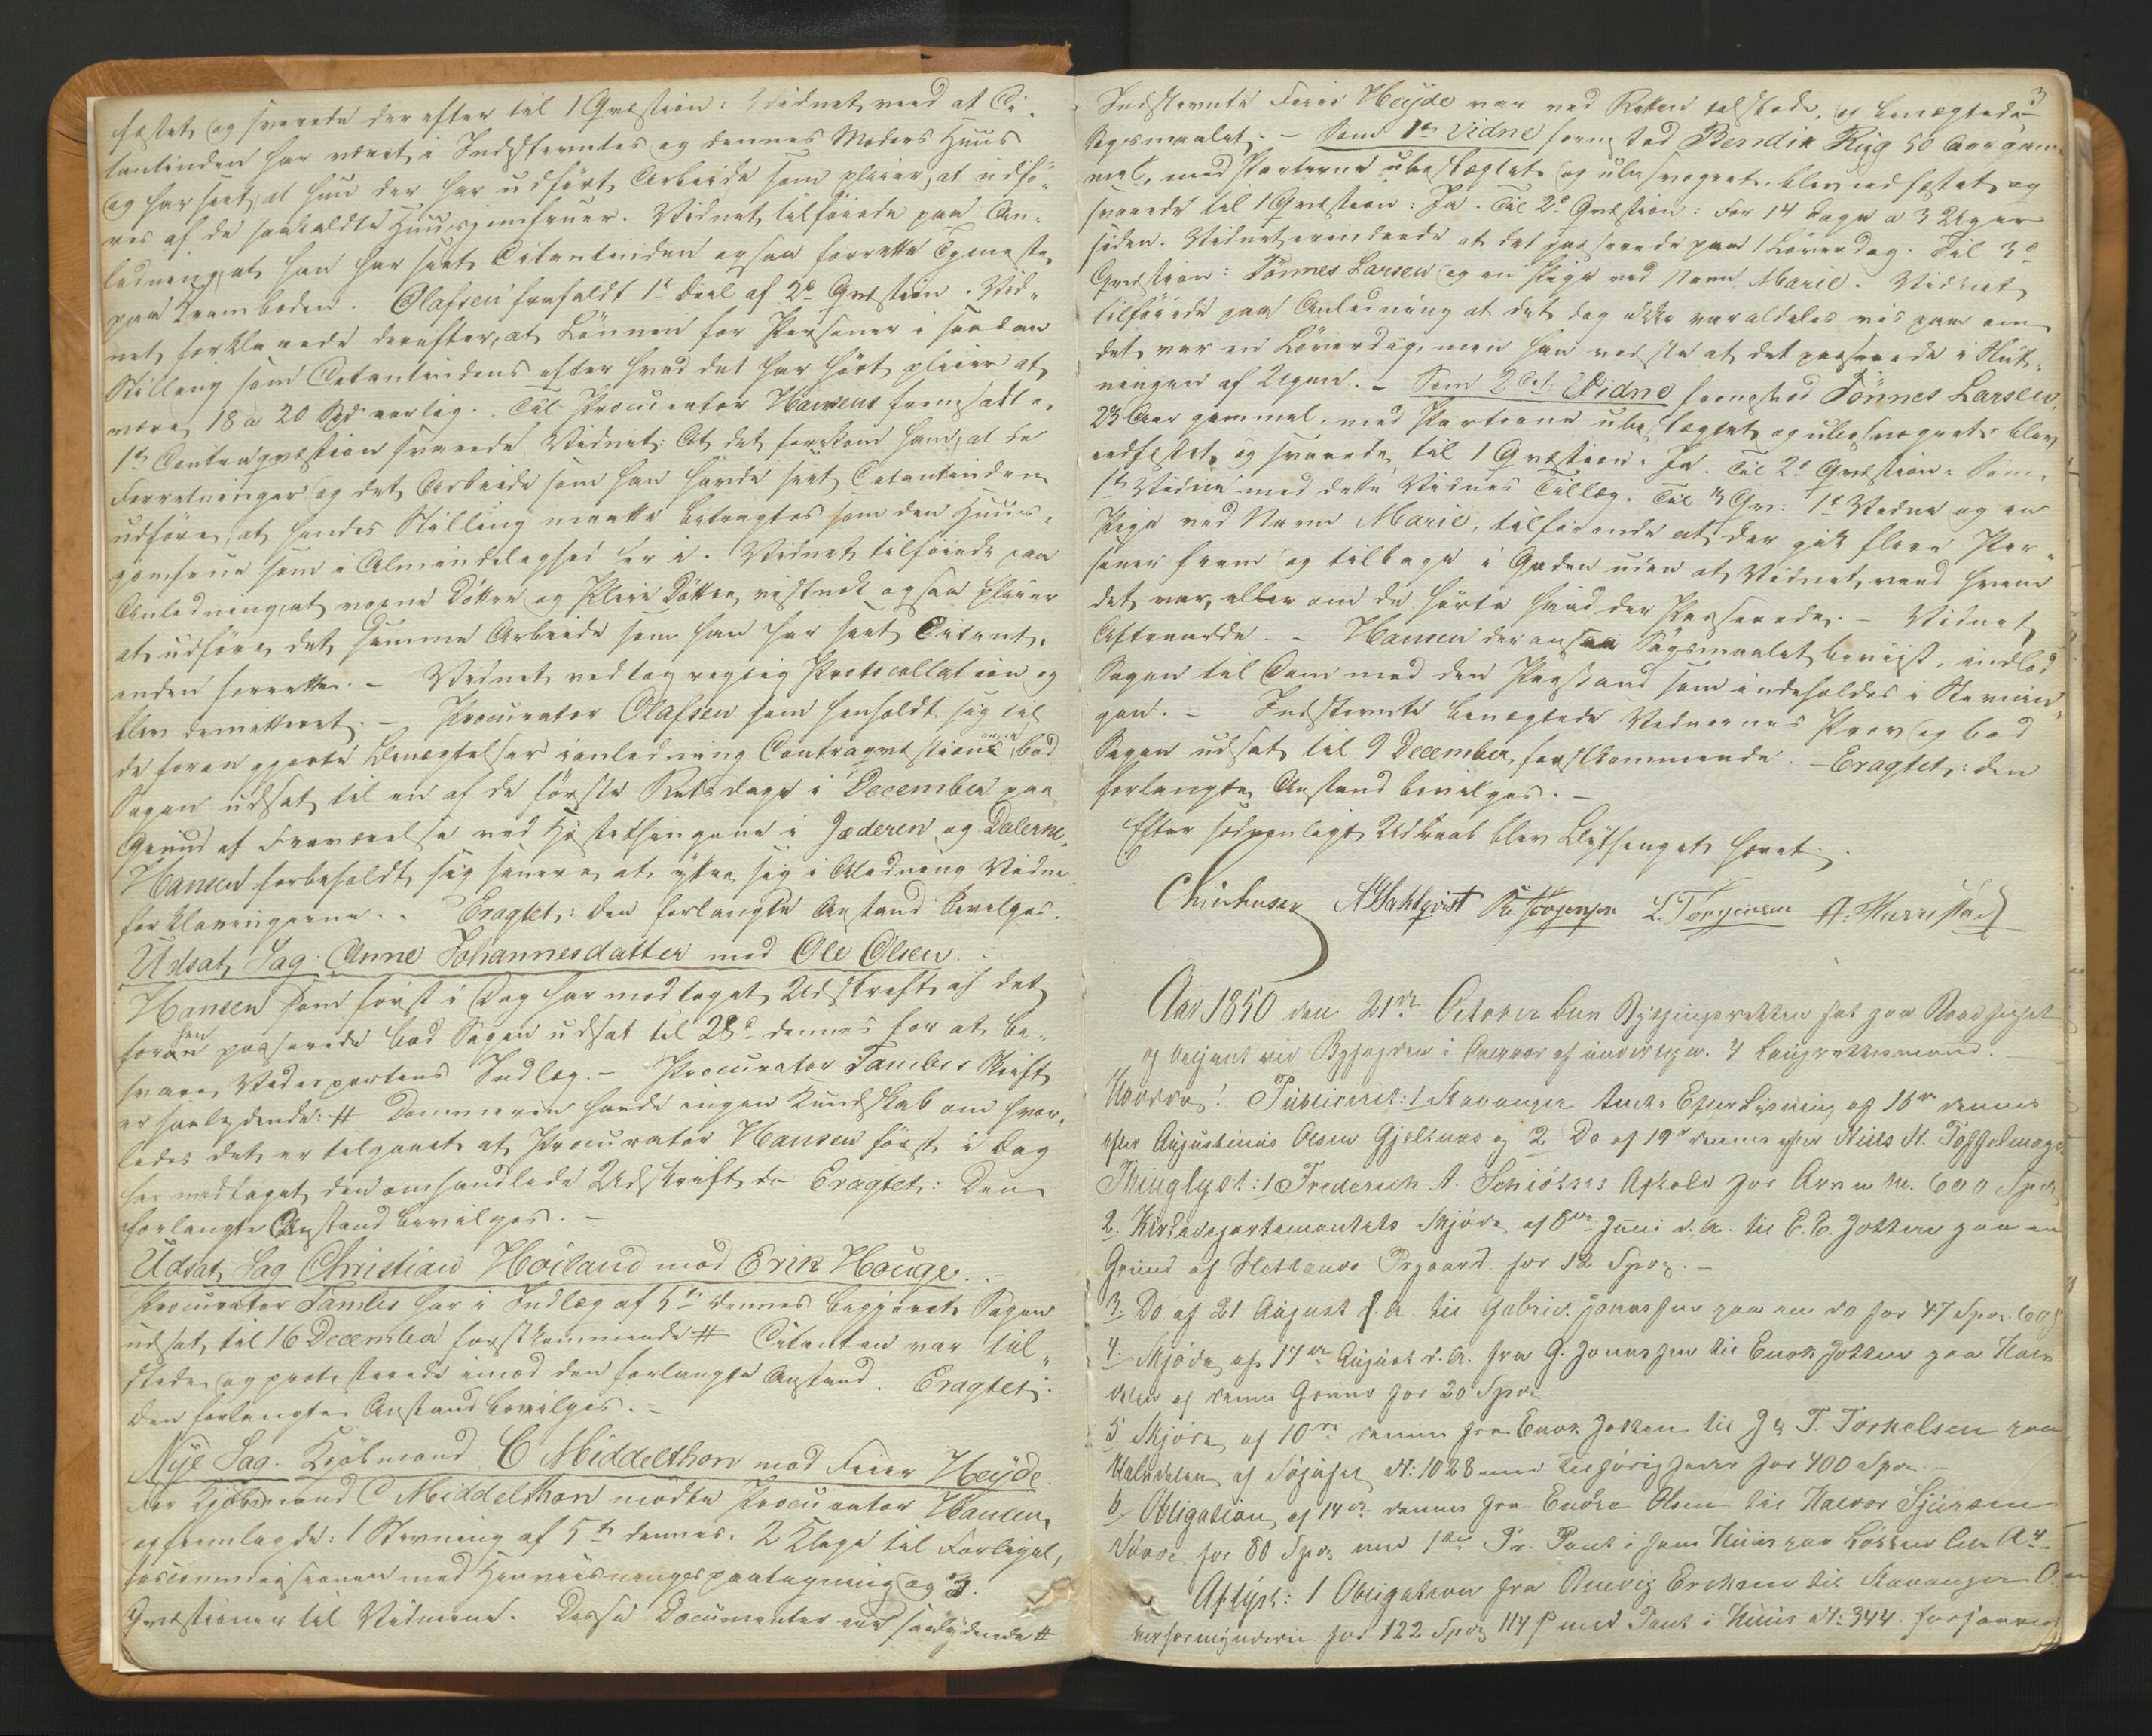 fæstet og svarede derefter til 1 Qvæstion: Vidnet veed at Ci-
tantinden har været i Indstevntes og dennes Moders Huus
og har seet, at hun der har udført Arbeide som pleier, at udfø-
res af de saakaldte Huusjomfruer. Vidnet tilføiede paa An-
ledning, at han har seet Citantinden ogsaa forrette Tjeneste
paa Kramboden. Olafsen frafaldt 1ste Deel af 2d Qvæstion. Vid-
net forklarede derefter, at Lønnen for Personer i saadan
Stilling som Citantindens efter hvad det har hört, pleier at
være 18 a 20 Spd aarlig. Til Procurator Hansens fremsatte
1ste Contraqvæstion svarede Vidnet: At det forekom ham, at de
Forretninger og det Arbeide som han havde seet Citantinden
udføre, at hendes Stilling maatte betragtes som den Huus-
jomfrue som i Almindelighed er i. Vidnet tilføiede paa
Anledning, at voxne Døttre og Pleie Døttre vistnok ogsaa pleier
at udføre det samme Arbeide som han har seet Citant-
inden forrette. – Vidnet vedtog rigtig Protocollation og
blev demitteret. – Procurator Olafsen som henholdt sig til
de foran gjorte Benægtelser i anledning Contraqvæstionerne, bad
Sagen udsat til en af de første Retsdage i December paa
Grund af Fraværelse ved Høstethingene i Jæderen og Dalerne.
Hansen forbeholdt sig senere at yttre sig i Aledning Vidne
forklaringerne. – Eragtet: Den forlangte Anstand bevilges.
Udsat Sag: Anne Johannesdatter mod Ole Olsen.
Hansen som først i Dag har modtaget Udskrift af det
foran hen passerede bad Sagen udsat til 28de dennes for at be-
svare Vederpartens Indlæg. – Procurator Tambs's Skrift
er saalydende: # Dommeren havde ingen Kundskab om hvor-
ledes det er tilgaaet at Procurator Hansen først i Dag
har modtaget den omhandlede Udskrift. Eragtet: Den
forlangte Anstand bevilges. –
Udsat Sag Christian Höiland mod Erik Houge. –
Procurator Tambs har i Indlæg af 5te dennes begjæret Sagen
udsat til 16 December førstkommende # Citanten var til-
stede og protesterede imod den forlangte Anstand. Eragtet:
Den forlangte Anstand bevilges. –
Nye Sag. Kjöbmand C Middelthon mod Feier Heyde.
For Kjöbmand C Middelthon mødte Procurator Hansen,
og fremlagde: 1 Stevning af 5te dennes. 2 Klage til Forligel-
sescommissionen med Henviisningspaategning og 3.
Qvæstioner til Vidnerne. Disse Documenter ere saalydende #
3
Indstevnte Feier Heyde var ved Retten tilstede, og benægtede
Søgsmaalet. – Som 1ste Vidne fremstod Bendik Rüg 50 Aar gam-
mel, med Parterne ubeslægtet og ubesvogret, blev edfæstet og
svarede til 1 Qvæstion: Ja. Til 2d Qvæstion: For 14 Dage a 3 Uger
siden. Vidnet erindrede at det passerede paa 1 Løverdag. Til 3d
Qvæstion: Tönnes Larsen og en Pige ved Navn Marie. Vidnet
tilføiede paa Anledning at det dog ikke var aldeles vis paa om
det var en Løverdag, men han vidste at det passerede i Slut-
ningen af Ugen. – Som 2det Vidne fremstod Tönnes Larsen,
23 Aar gammel, med Parterne ubeslægtet og ubesvogret blev
edfæstet, og svarede til 1 Qvæstion: Ja. Til 2d Qvæstion: Som
1ste Vidne med dette Vidnes Tillæg. Til 3 Qv: 1ste Vidne og en
Pige ved Navn Marie, tilføiende at der gik flere Per-
soner frem og tilbage i Gaden uden at Vidnet veed hvem
det var, eller om de hørte hvad der Passerede. – Vidnet
Aftraadde. – Hansen der ansaa Søgsmaalet beviist, indlod
Sagen til Dom med den Paastand som indeholdes i Stevnin-
gen. – Indstevnte benægtede Vidnernes Prov og bad
Sagen udsat til 9 December førstkommende. – Eragtet: den
forlangte Anstand bevilges. –
Efter sædvanligt Udraab blev Bythinget hævet.
A Dahlqvist
Aar 1850 den 21de October blev Bythingsretten sat paa Raadhuset
og betjent ved Byfogden i Overvær af undertegn. 4 Laugrettesmænd. –
Hvorda: Publiceret: 1 Stavanger Efterlysning af 16de dennes
efter Augustinus Olsen Gjeltnes og 2 Do af 19de dennes efter Niels N.
Thinglyst: 1 Frederich A. Schiötzes Afkald for Arv 600 Spd
2. Kirkedepartementets Skjöde af 8de Juni d.A. til E. E. Jossen paa en
Grund af Hetlands Prgaard for 12 Spd. –
3. Do af 21 August f. A. til Gabriel Jonassen paa en do for 47 Spd. 60 s
4. Skjöde af 17de August d. A. fra G. Jonassen til Enok Jossen paa Halv-
delen af denne Grund for 20 Spd
5 Skjöde af 10de dennes fra Enok Jossen til J T. Torkelsen paa
Halvdelen af Söhuset N: 1028 med tilhørigheder for 400 Spd. –
6 Obligation af 14de dennes fra Endre Olsen til Halvor Sjursen
for 80 Spd med 1ste Pr. Pant i hans Huus paa
Aflyst: 1 Obligation fra Ericksen til Stavanger O-
verformynderie for 122 Spd 114 s med Pant i Huus N: 344.